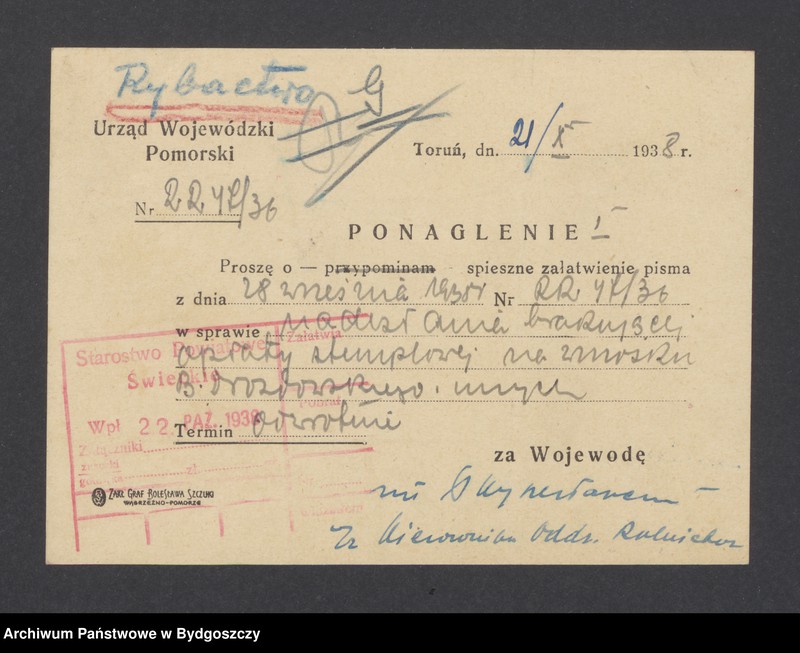 Rybactwo G
Urząd Wojewódzki
Pomorski
Toruń, dn. 21/X 1938 r.
Nr RR 47/36
PONAGLENIE I
Proszę o — przypominam - spieszne załatwienie pisma
z dnia 28 września 1938r Nr RR 47/36
w sprawie nadesłania brakującej
opłaty stemplowej na wniosku
B. Drozdowskiego i innych
Termin odwrotnie
Starostwo Powiatowe
Świeckie
Załatwia
Wpł 22. PAŹ. 1938
Załączniki
zł.
za Wojewodę
Kierownika Oddz.
ZAKŁ GRAF BOLESŁAWA SZCZUKI
WĄBRZEŹNO-POMORZE
Archiwum Państwowe w Bydgoszczy